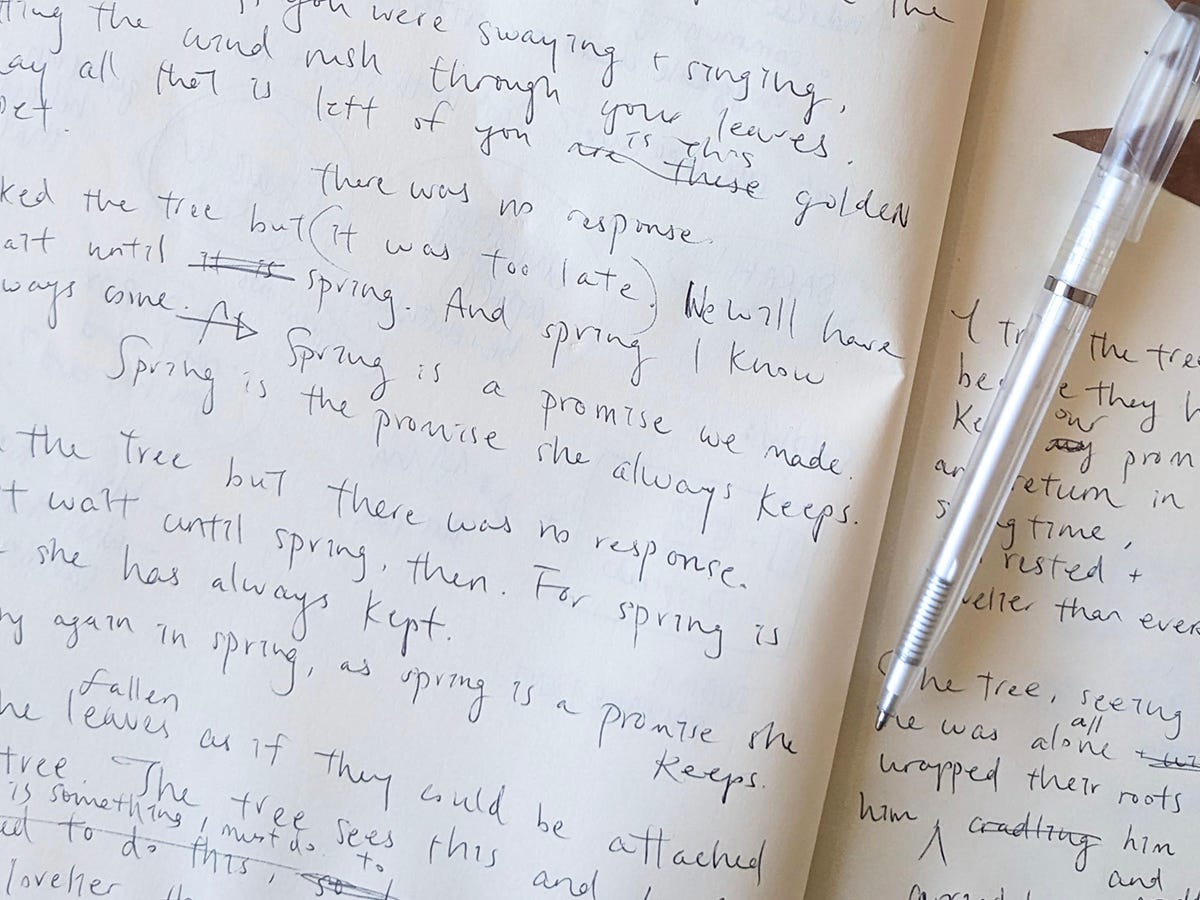 the
if you were swaying + singing,
tting the wind rush through your leaves.
ay all that is left of you are these is this golden
set.
there was no response.
ked the tree but (it was too late). We will have
ait until it is spring. And spring I know
ways come. Spring is a promise we made.
Spring is the promise she always keeps.
the tree but there was no response.
t wait until spring, then. For spring is
she has always kept.
ny again in spring, as spring is a promise she
keeps.
fallen
he leaves as if they could be attached
tree. The tree sees this and
is something, must do
ed to do this, so to
lovelier
I the tree
they h
our
Ke my prom
an return in
s g time,
rested +
velier than ever
The tree, seeing
all
he was alone +
wrapped their roots
him cradling him
and